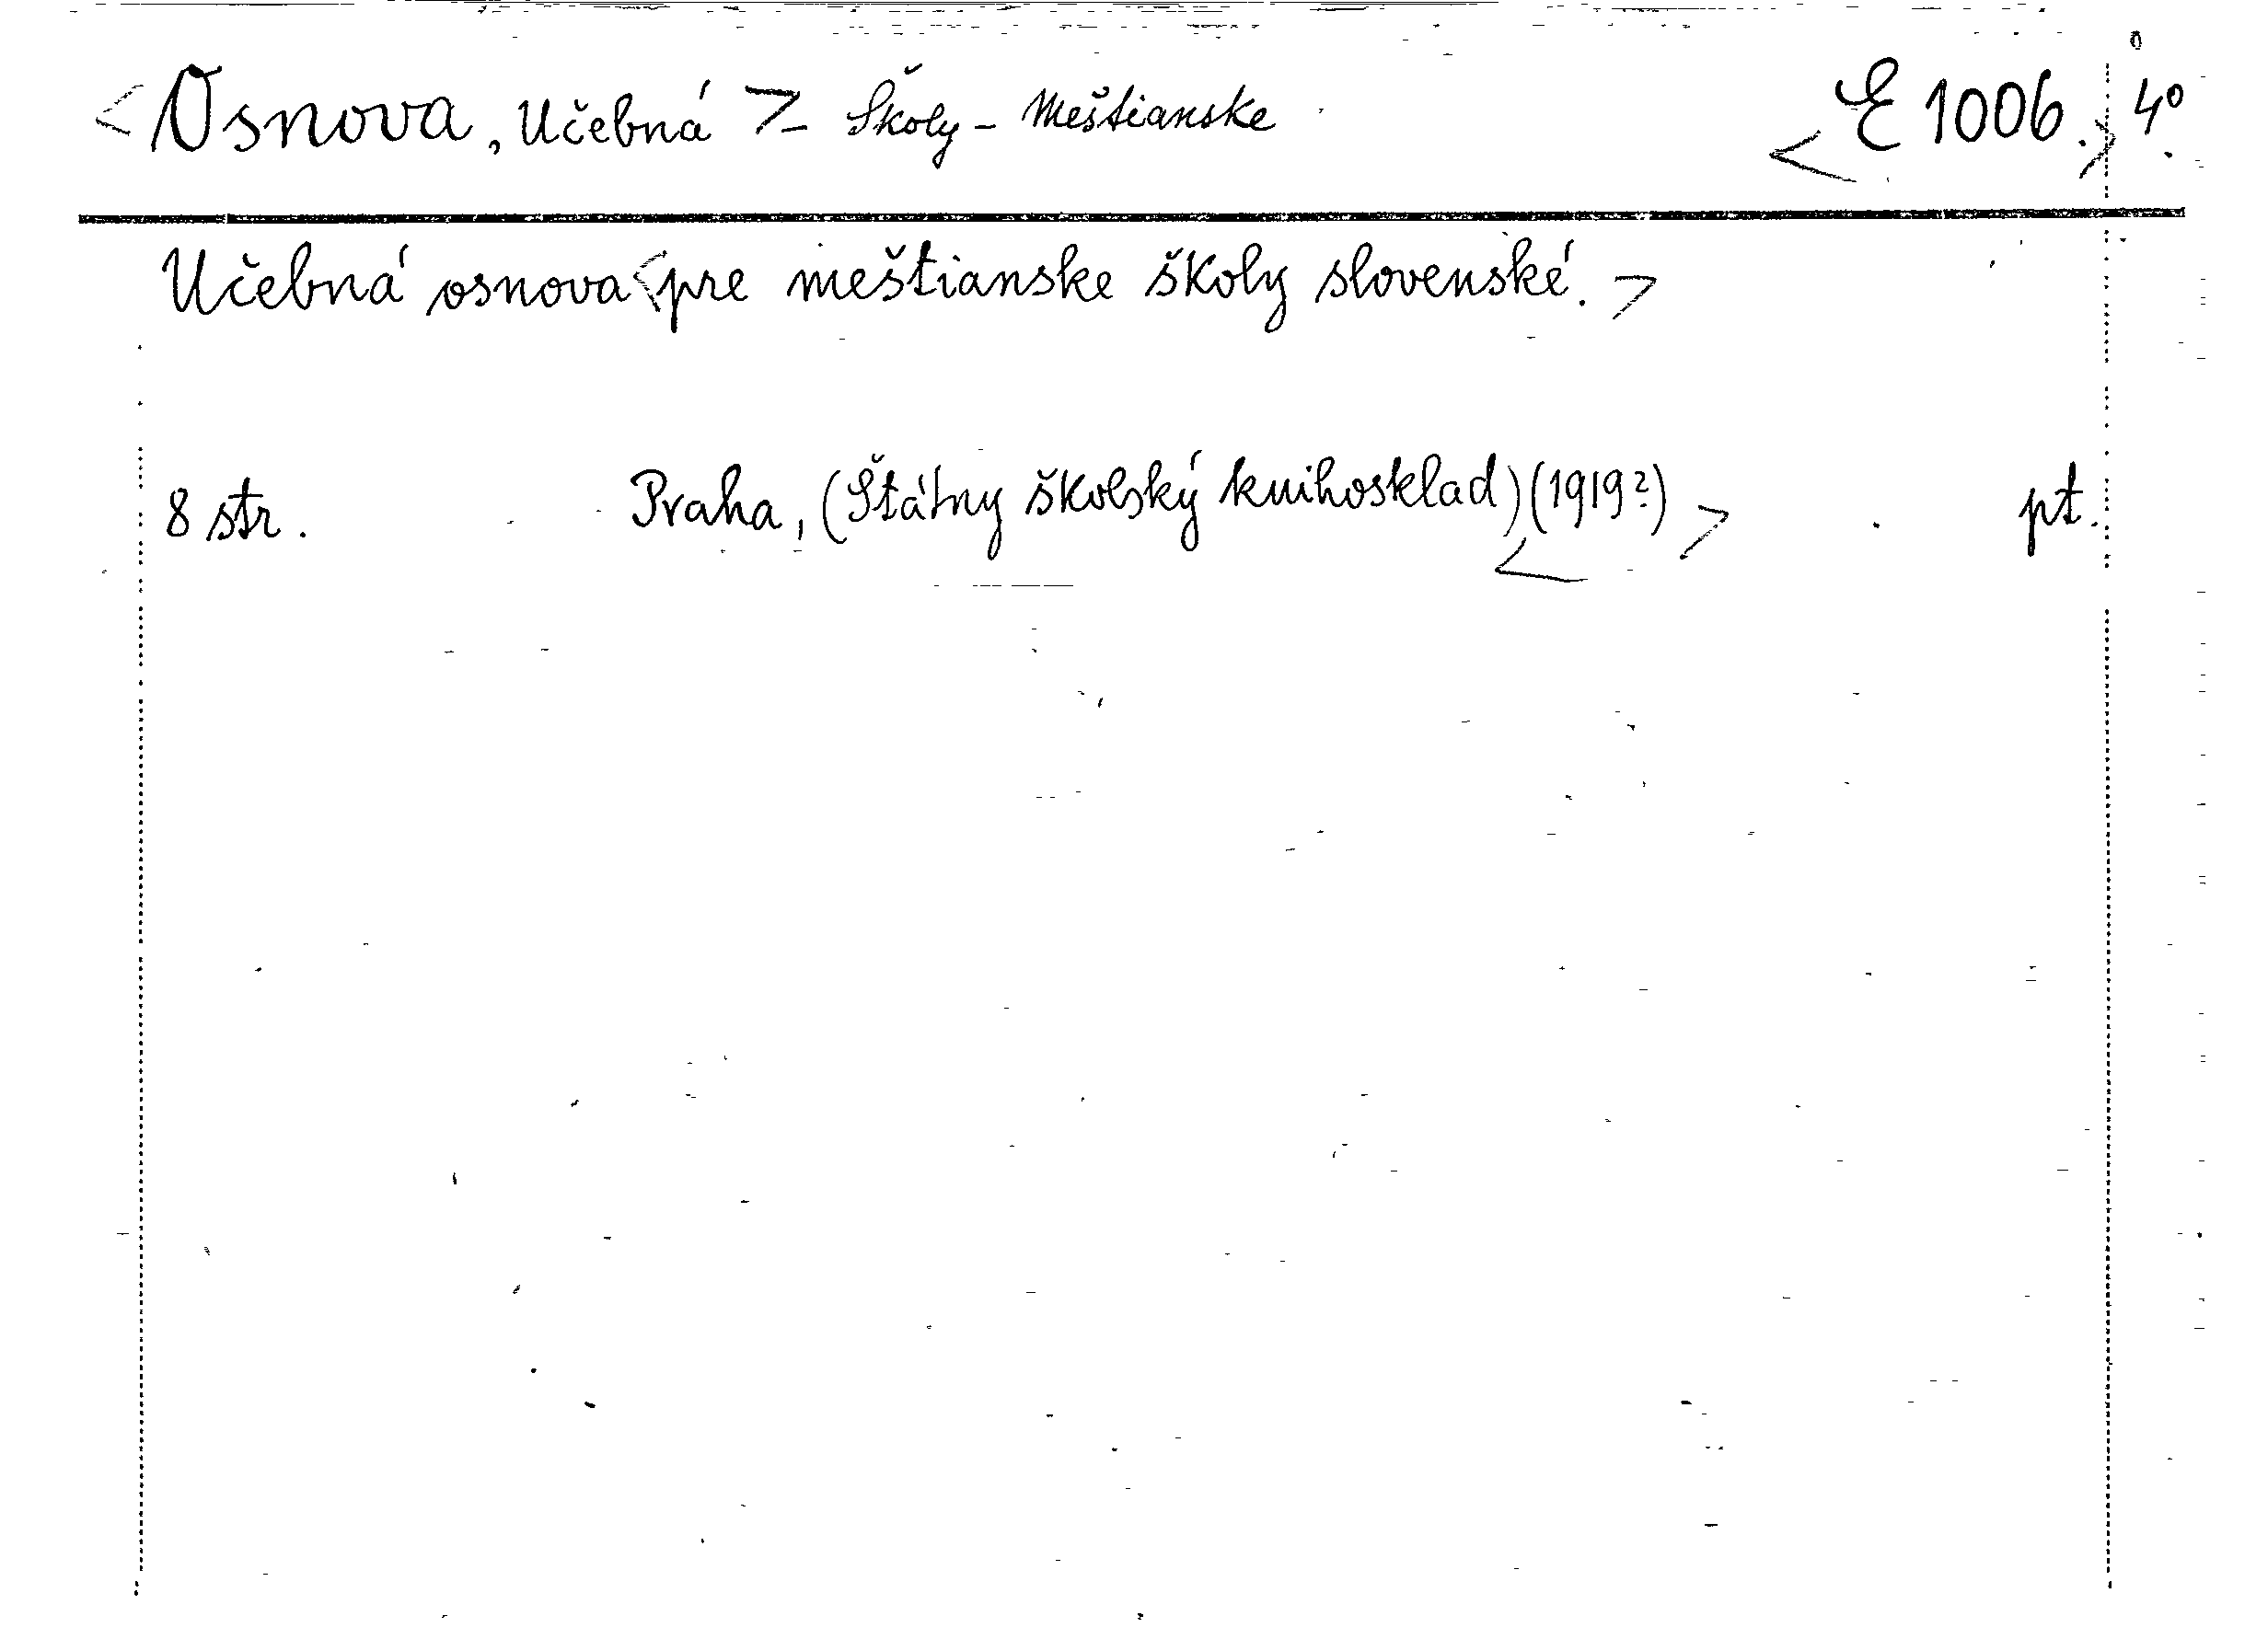 <Osnova, Učebná> – Školy – Meštianske <E 1006.> 4°
Učebná osnova <pre meštianske školy slovenské.>
8 str. Praha, (Štátny školský knihosklad) <(1919?)> pt.